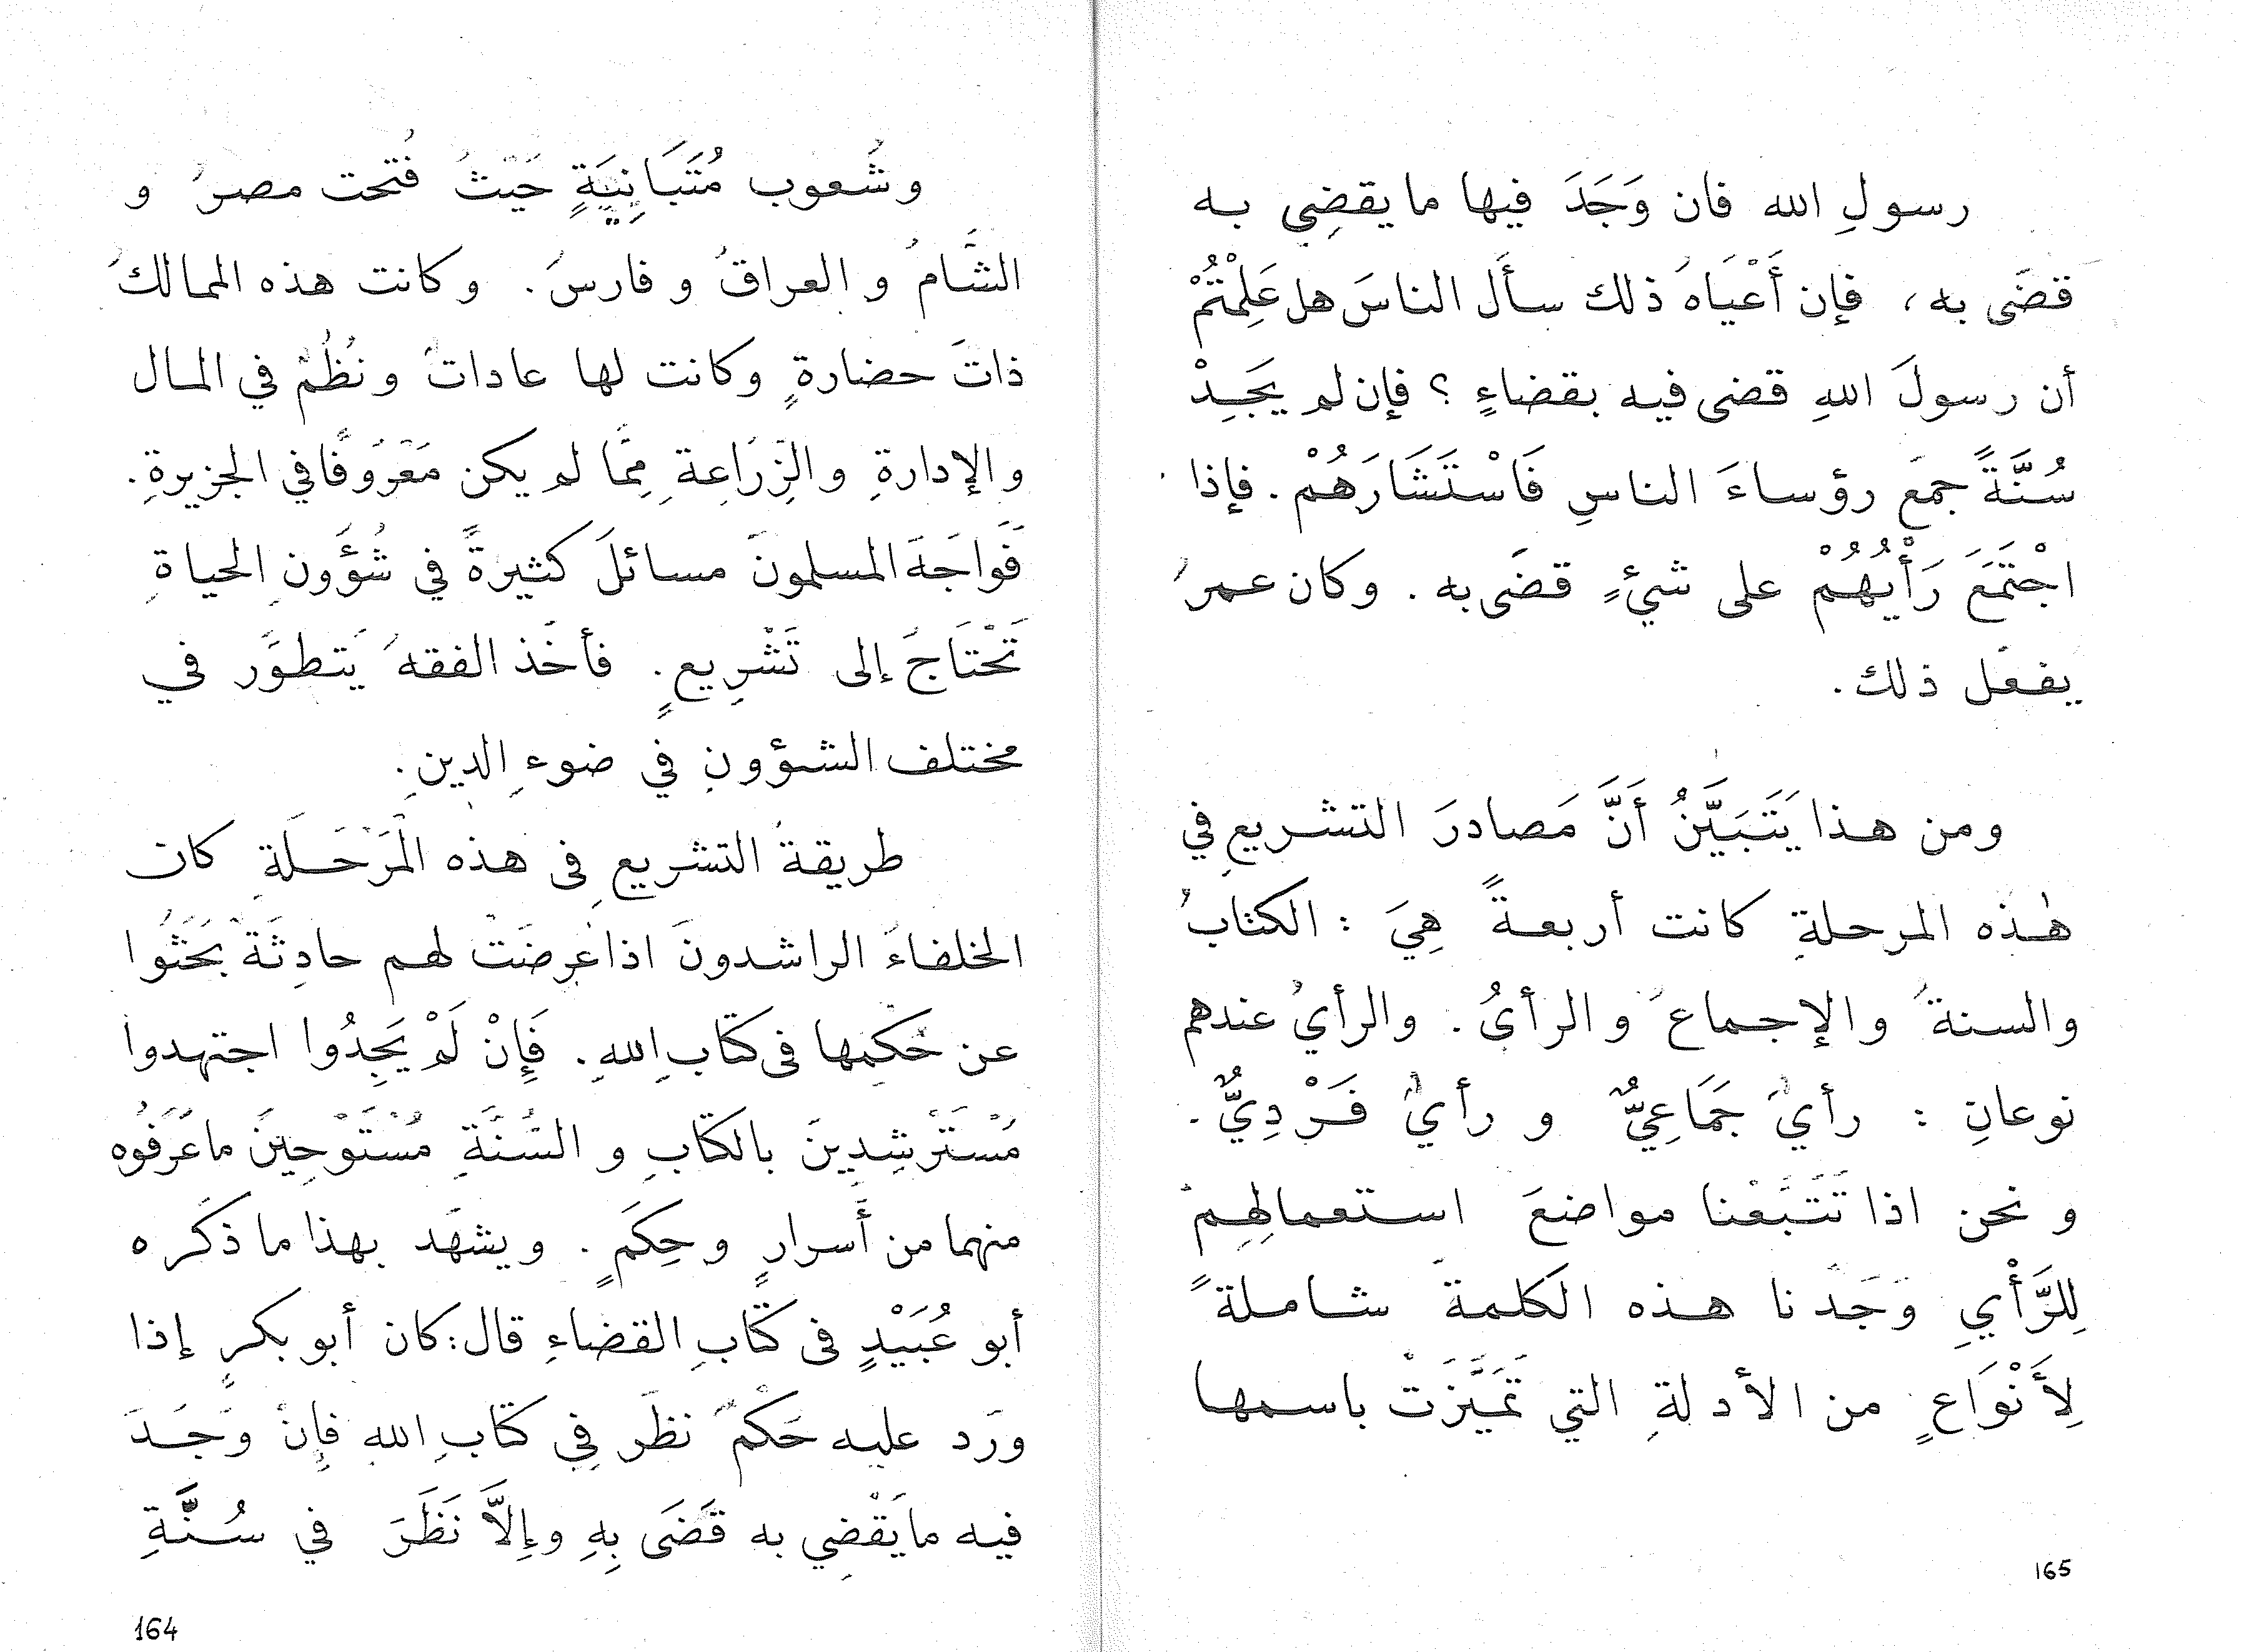 وشُعوب مُتَبَانِيَةٍ حَيْثُ فُتحت مصرُ و
الشَّامُ و العراقُ و فارسُ. وكانت هذه الممالكُ
ذاتَ حضارةٍ وكانت لها عاداتٌ ونُظُمٌ في المال
والإدارةِ والزِّرَاعةِ مِمَّا لم يكن مَعْرُوفًا في الجزيرةِ.
فَوَاجَهَ المسلمونَ مسائلَ كثيرةً في شُؤُونِ الحياةِ
تَحْتَاجُ إلى تَشْرِيعٍ. فأخَذ الفقهُ يَتطوَّر في
مختلف الشؤونِ في ضوءِ الدينِ.
طريقةُ التشريعِ فى هذه المَرْحَلَةِ كان
الخلفاءُ الراشدونَ اذا عَرِضَتْ لهم حادِثَةٌ بَحَثُوا
عن حُكْمِها فى كتَابِ اللهِ. فَإِنْ لَمْ يَجِدُوا اجتهدوا
مُسْتَرْشِدِينَ بالكتَابِ و السُّنَّةِ مُسْتَوْحِينَ ما عَرَفُوه
منهما من أَسرارٍ وحِكَمٍ. ويشهَد بهذا ما ذكَره
أبو عُبَيْدٍ فى كتَابِ القضاءِ قال: كان أبو بكرٍ إذا
ورَد عليه حَكْمٌ نظَر فِي كتَابِ اللهِ فإِنْ وَجَدَ
فيه ما يَقْضِي به قَضَى بِهِ وإِلاَّ نَظَرَ في سُنَّةِ
164
رسولِ الله فان وَجَدَ فيها ما يقضِي به
قضَى به، فإن أَعْيَاهُ ذلك سأَل الناسَ هل عَلِمْتُمْ
أن رسولَ اللهِ قضى فيه بقضاءٍ؟ فإن لم يَجِدْ
سُنَّةً جمَع رؤساءَ الناسِ فَاسْتَشَارَهُمْ. فإذا
اجْتَمَعَ رَأْيُهُمْ على شيءٍ قضَى به. وكان عمرُ
يفعَل ذلك.
ومن هذا يَتَبَيَّنُ أَنَّ مَصادرَ التشريعِ في
هٰذه المرحلةِ كانت أربعةً هِيَ: الكتابُ
والسنةُ والإجماعُ والرأىُ. والرأيُ عندهم
نوعانِ: رأيٌ جَمَاعِيٌّ و رأيٌ فَرْدِيٌّ.
و نحن اذا تَتَبَّعْنا مواضعَ استعمالِهِمْ
لِلرَّأْيِ وَجَدْنا هذه الكلمةَ شاملةً
لِأَنْوَاعٍ من الأدلةِ التي تَمَيَّزَتْ باسمها
165